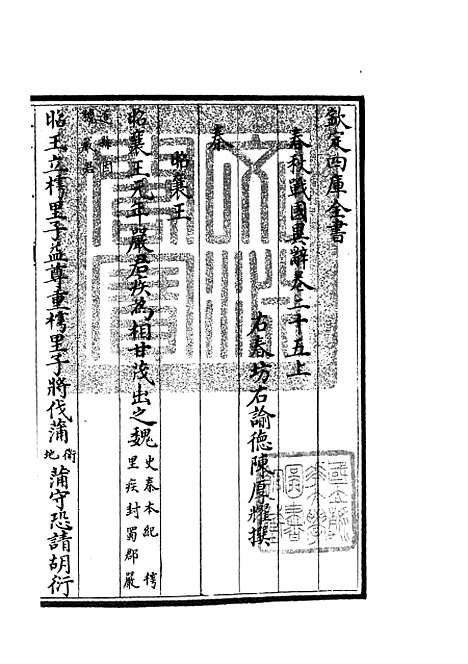 欽定四庫全書
春秋戰國異辭卷二十五上
右春坊右諭德陳厚耀撰
秦
昭襄王
昭襄王元年嚴君疾為相甘茂出之魏史秦本紀 樗
里疾封蜀郡嚴
道縣因
號嚴君
昭王立樗里子益尊重樗里子將伐蒲衛地蒲守恐請胡衍